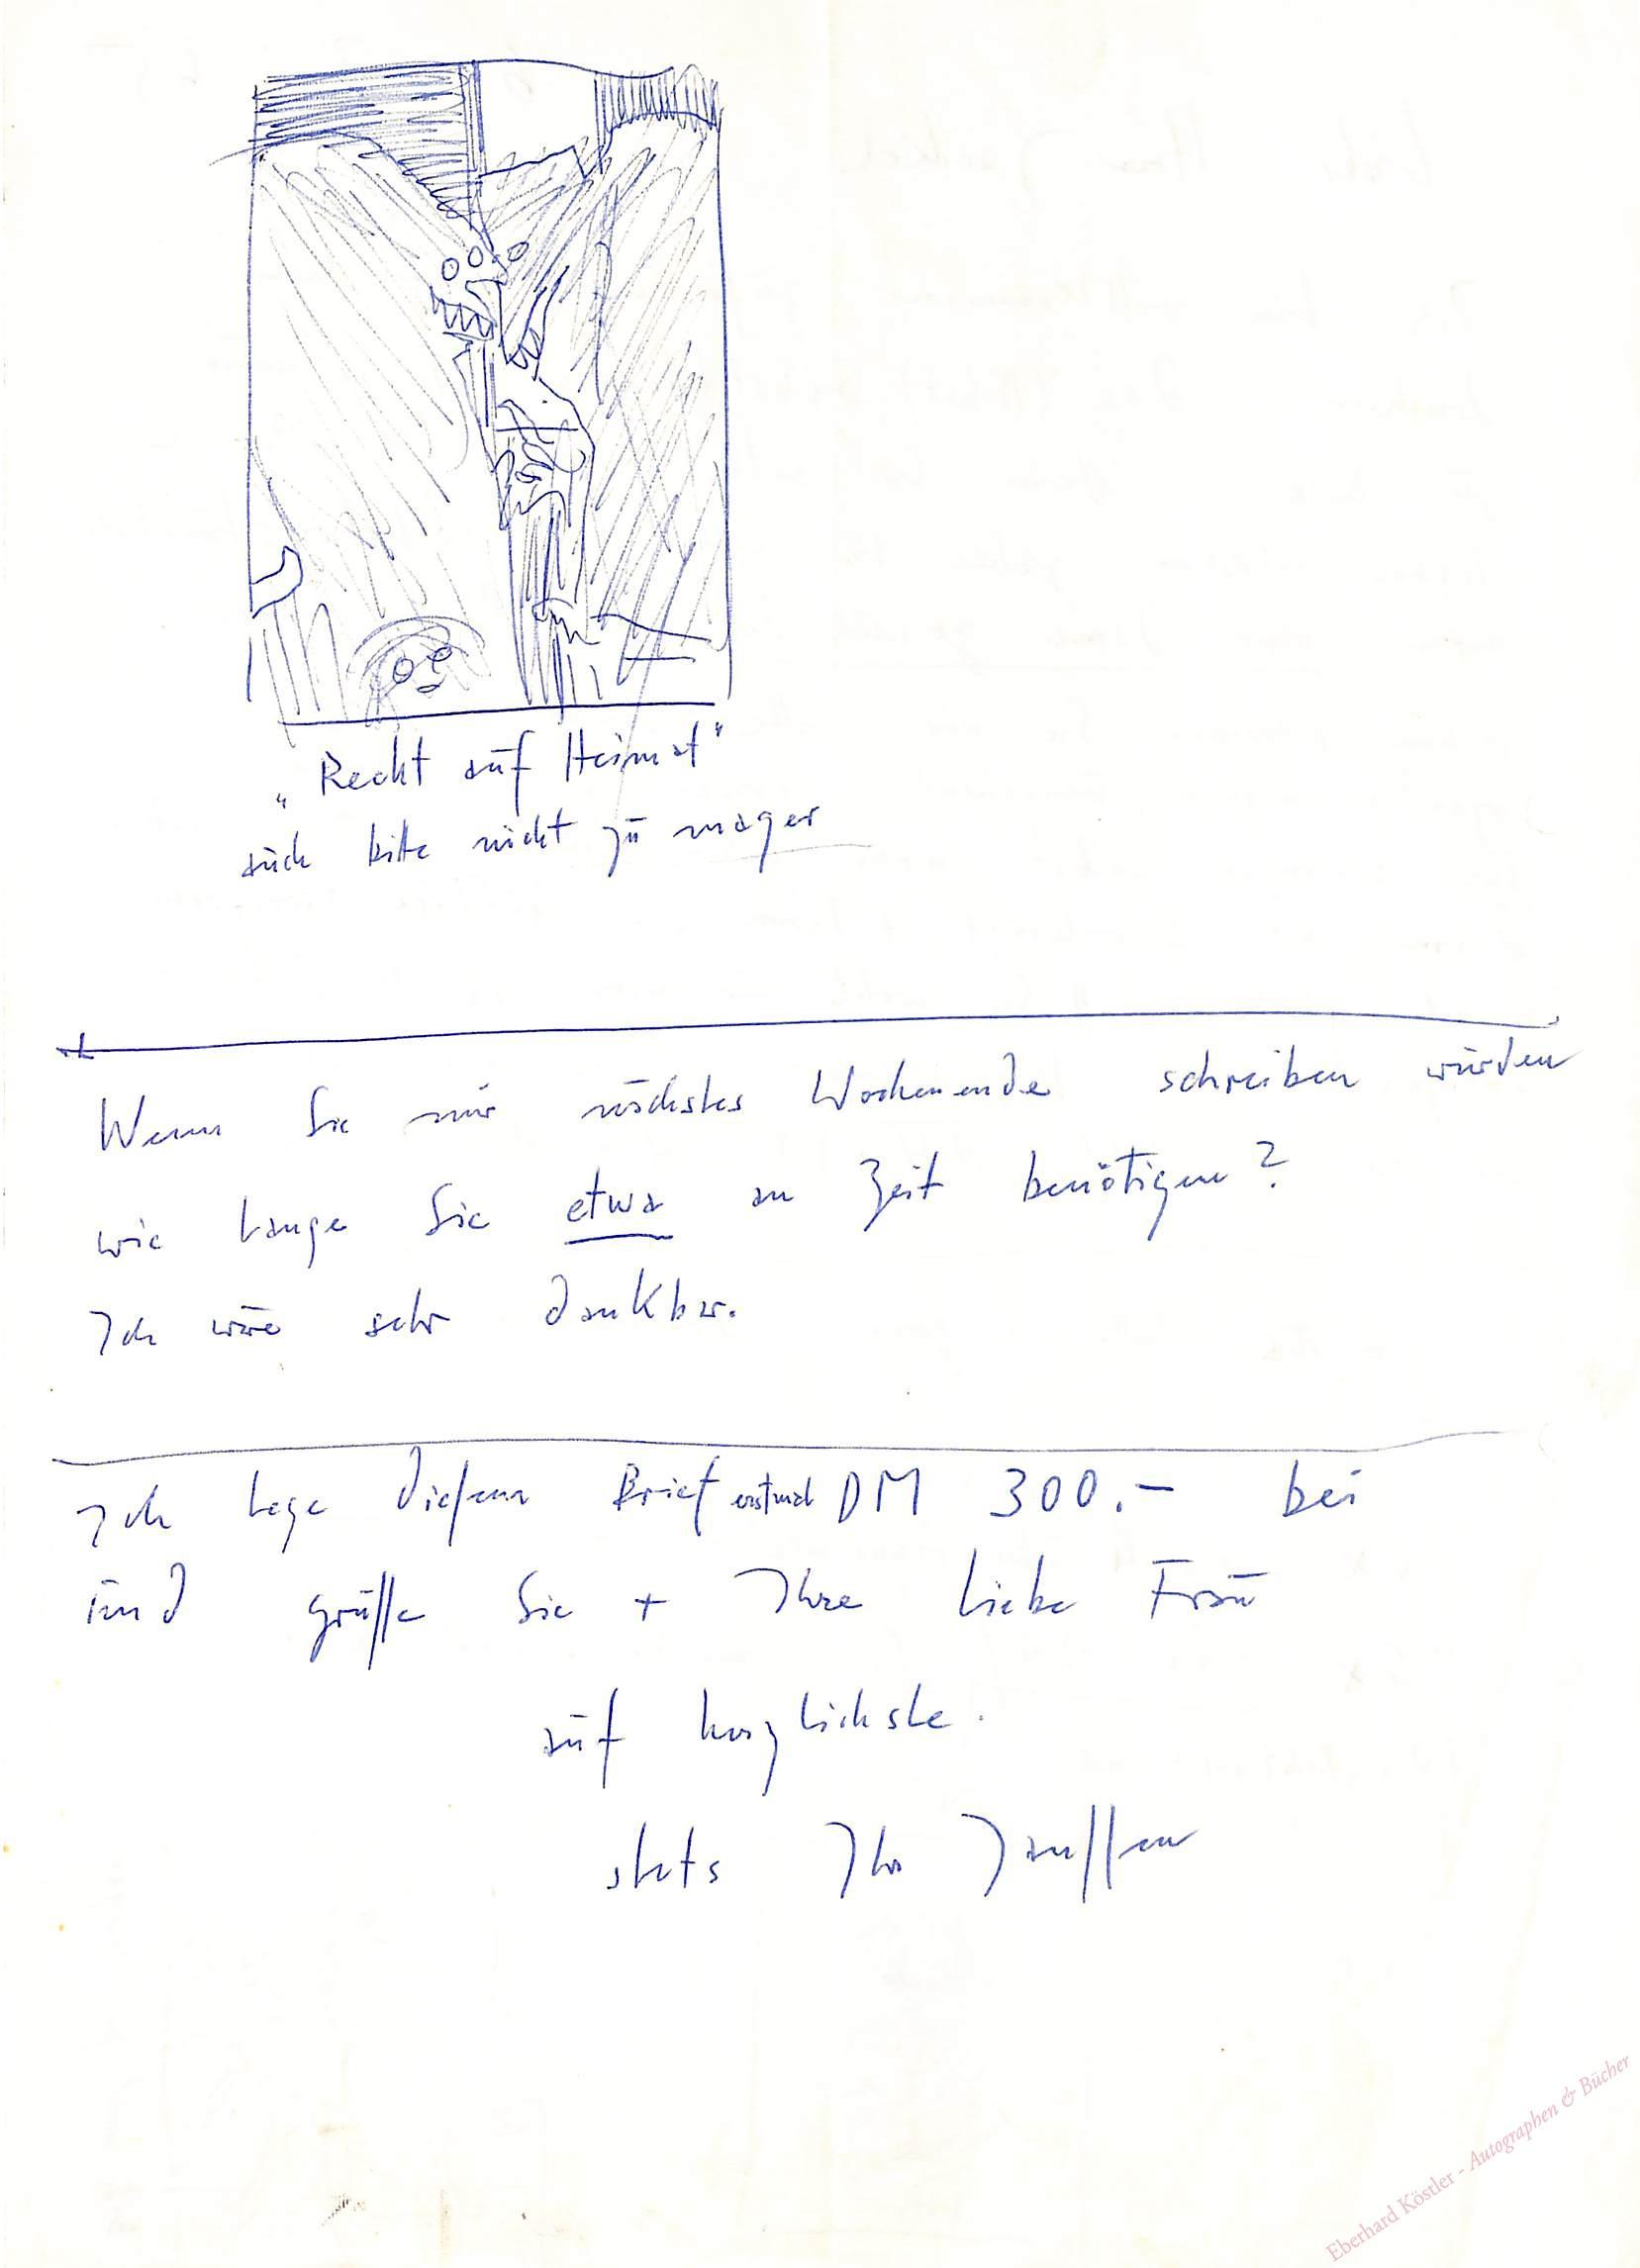 „Recht auf Heimat“
auch bitte nicht zu mager
Wenn Sie mir nächstes Wochenende schreiben würden
wie lange Sie etwa an Zeit benötigen?
Ich wäre sehr dankbar.
Ich lege diesem Brief erstmal DM 300.- bei
und grüsse Sie + Ihre liebe Frau
auf herzlichste.
stets Ihr Janssen
Eberhard Köstler - Autographen & Bücher